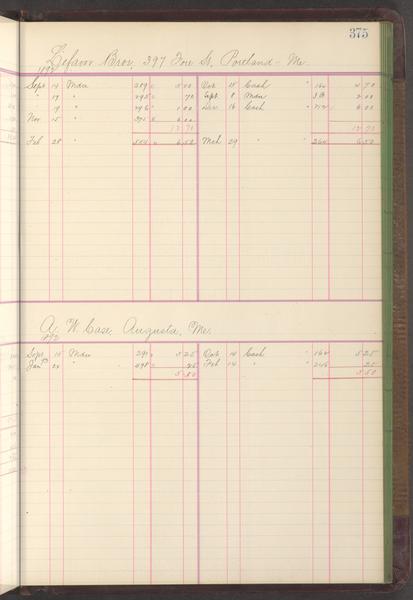 375
Bros, 397 Fore St, Portland - Me.
1892
Sept 14 Mdse 289 5 00 Oct 15 Cash " 164 4 70
" 17 " 295 70 Sept 8 Mdse 2 00
" 19 " 296 1 00 Dec 16 Cash " 6 00
Nov 15 " 371 6 00
12 70 12 70
Feb 28 " 554 6 50 Mch 29 " " 264 6 50
A. W. Case, Augusta, Me.
1892
Sept 15 Mdse 291 5 25 Oct 14 Cash " 162 5 25
Jan 24 " 498 25 Feb 14 " " 246 25
5 50 5 50